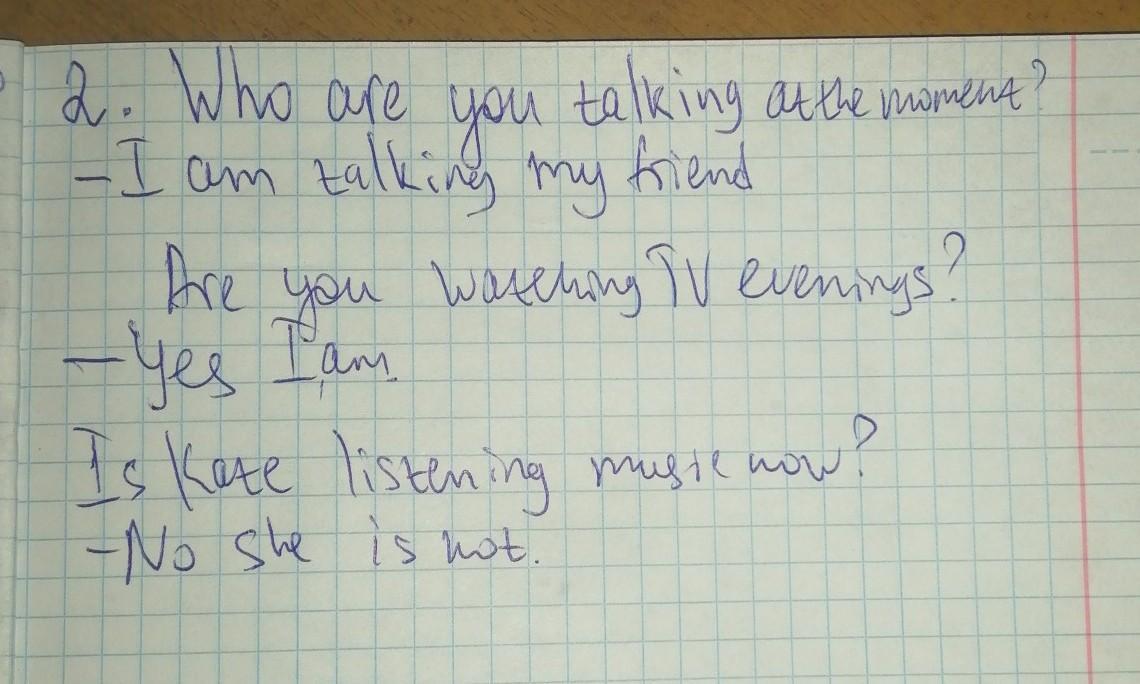 2. Who are you talking at the moment?
- I am talking my friend
Are you watching TV evenings?
- Yes I am.
Is Kate listening music now?
- No she is not.